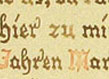 hier zu mi
Jahren Ma